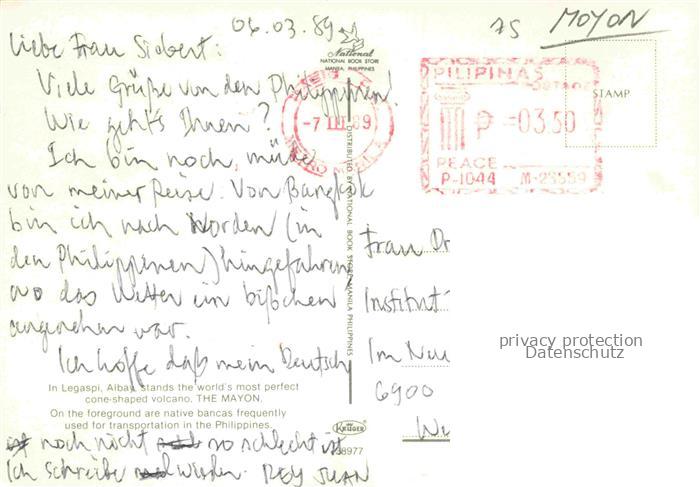 06.03.89
75 MOYON
Liebe Frau Siebert:
Viele Grüße von den Philippinen!
Wie geht's Ihnen?
Ich bin noch müde
von meiner Reise. Von Bangkok
bin ich nach Norden (in
den Philippinen) hingefahren,
wo das Wetter ein bißchen
angenehm war.
Ich hoffe daß mein Deutsch
noch nicht so schlecht ist
Ich schreibe wieder. REY JUAN
National
NATIONAL BOOK STORE
MANILA, PHILIPPINES
-7 III 89
PILIPINAS
POSTAGE
P =03.50
PEACE
P-1044 M-23559
STAMP
DISTRIBUTED BY NATIONAL BOOK STORE MANILA PHILIPPINES
Frau Dr
Institut
Im Neu
6900
privacy protection
Datenschutz
In Legaspi, Albay, stands the world's most perfect
cone-shaped volcano, THE MAYON.
On the foreground are native bancas frequently
used for transportation in the Philippines.
KRÜGER